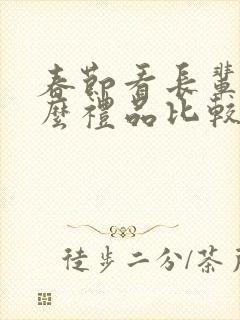 春節看長輩
麼禮品比較
徒步二分/茶戶